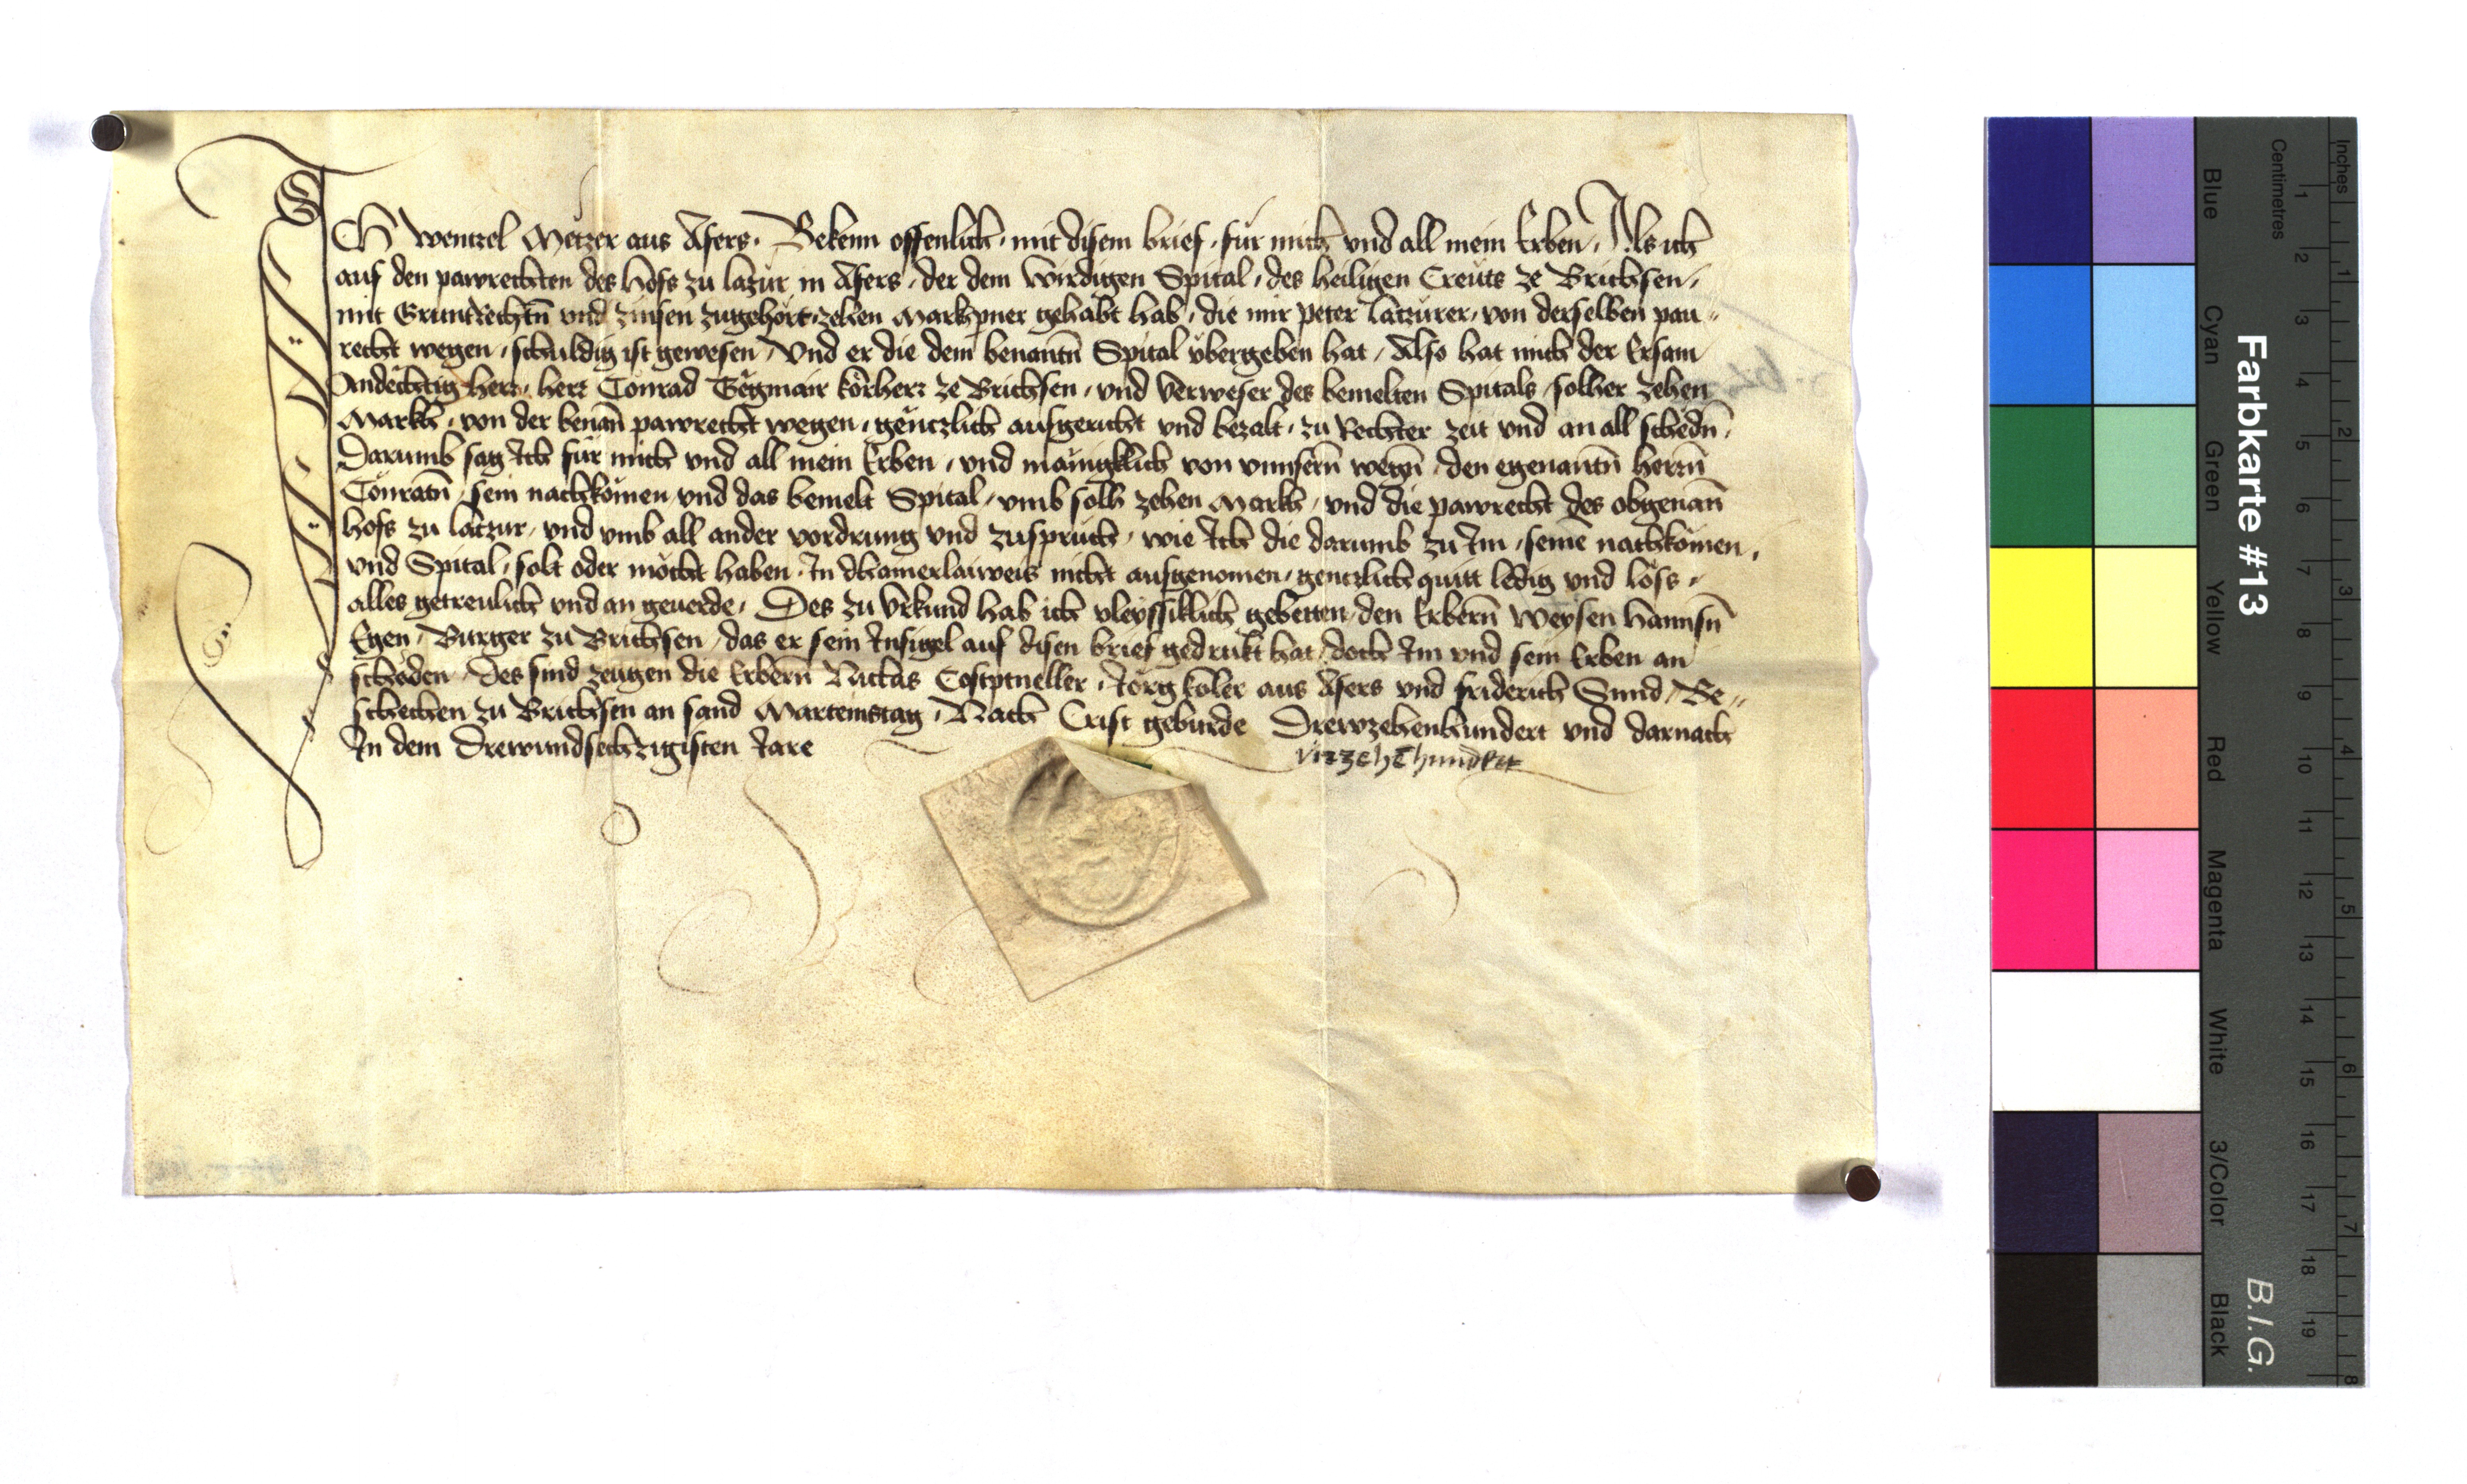 ICh wentzel Metzer aus Afers. Bekenn offenlich, mit disem brief, für mich und all mein Erben, Als ich
auf den pawrechten des hofs zu lazür in Afers, der dem wirdigen Spital, des heiligen Creüts ze Brichsen,
mit Gruntrechtn̄ und zinsen zugehört, zehen Markh pner gehabt hab, die mir peter latzürer, von derselben pau„
recht wegen, schuldig ist gewesen, Und er die dem benantn̄ Spital übergeben hat, Also hat mich der Ersam
Andëchtig herr, herr Conrad körherr ze Brichsen, und Verweser des bemelten Spitals, solher zehen
Markh, von der benan̄ pawrecht wegen, gëntzlich ausgericht und bezalt, zu Rechter zeit und an all schëdn̄,
Darumb sag Ich für mich und all mein Erben, und mäingklich von unnsern̄ wegn̄, den egenantn̄ herrn̄
Conratn̄, sein nachkömen und das bemelt Spital, umb solh zehen Markh, und die pawrecht des obgenan̄
hofs zu latzur, und umb all ander vordrung und zuspruch, wie Ich die darumb zu Im, seinē nachkömen,
und Spital, solt oder möcht haben, In dhainerlaiweis nicht aufgenomen, gentzlich quitt ledig und löss,
alles getreulich und an geuerde, Des zu Urkund hab ich vleyssiklich gebetten, den Erbern̄ Weysen hannsn̄
Egen, Burger zu Brichsen, das er sein Insigel auf disen brief gedrukt hat, doch Im und sein Erben an
schäden, Des sind zeugen die Erbern̄ Niclas Costptneller, Jörg koler aus Afers und fridrich Sund, Be„
schechen zu Brichsen an sand Marteinstag, Nach Crist geburde Drewzehenhundert und darnach
In dem Drewundsechzigisten Jare
virzehēhundert
Farbkarte #13
B.I.G.
Inches
Centimetres
1 2 3 4 5 6 7 8 9 10 11 12 13 14 15 16 17 18 19
1 2 3 4 5 6 7 8
Blue
Cyan
Green
Yellow
Red
Magenta
White
3/Color
Black